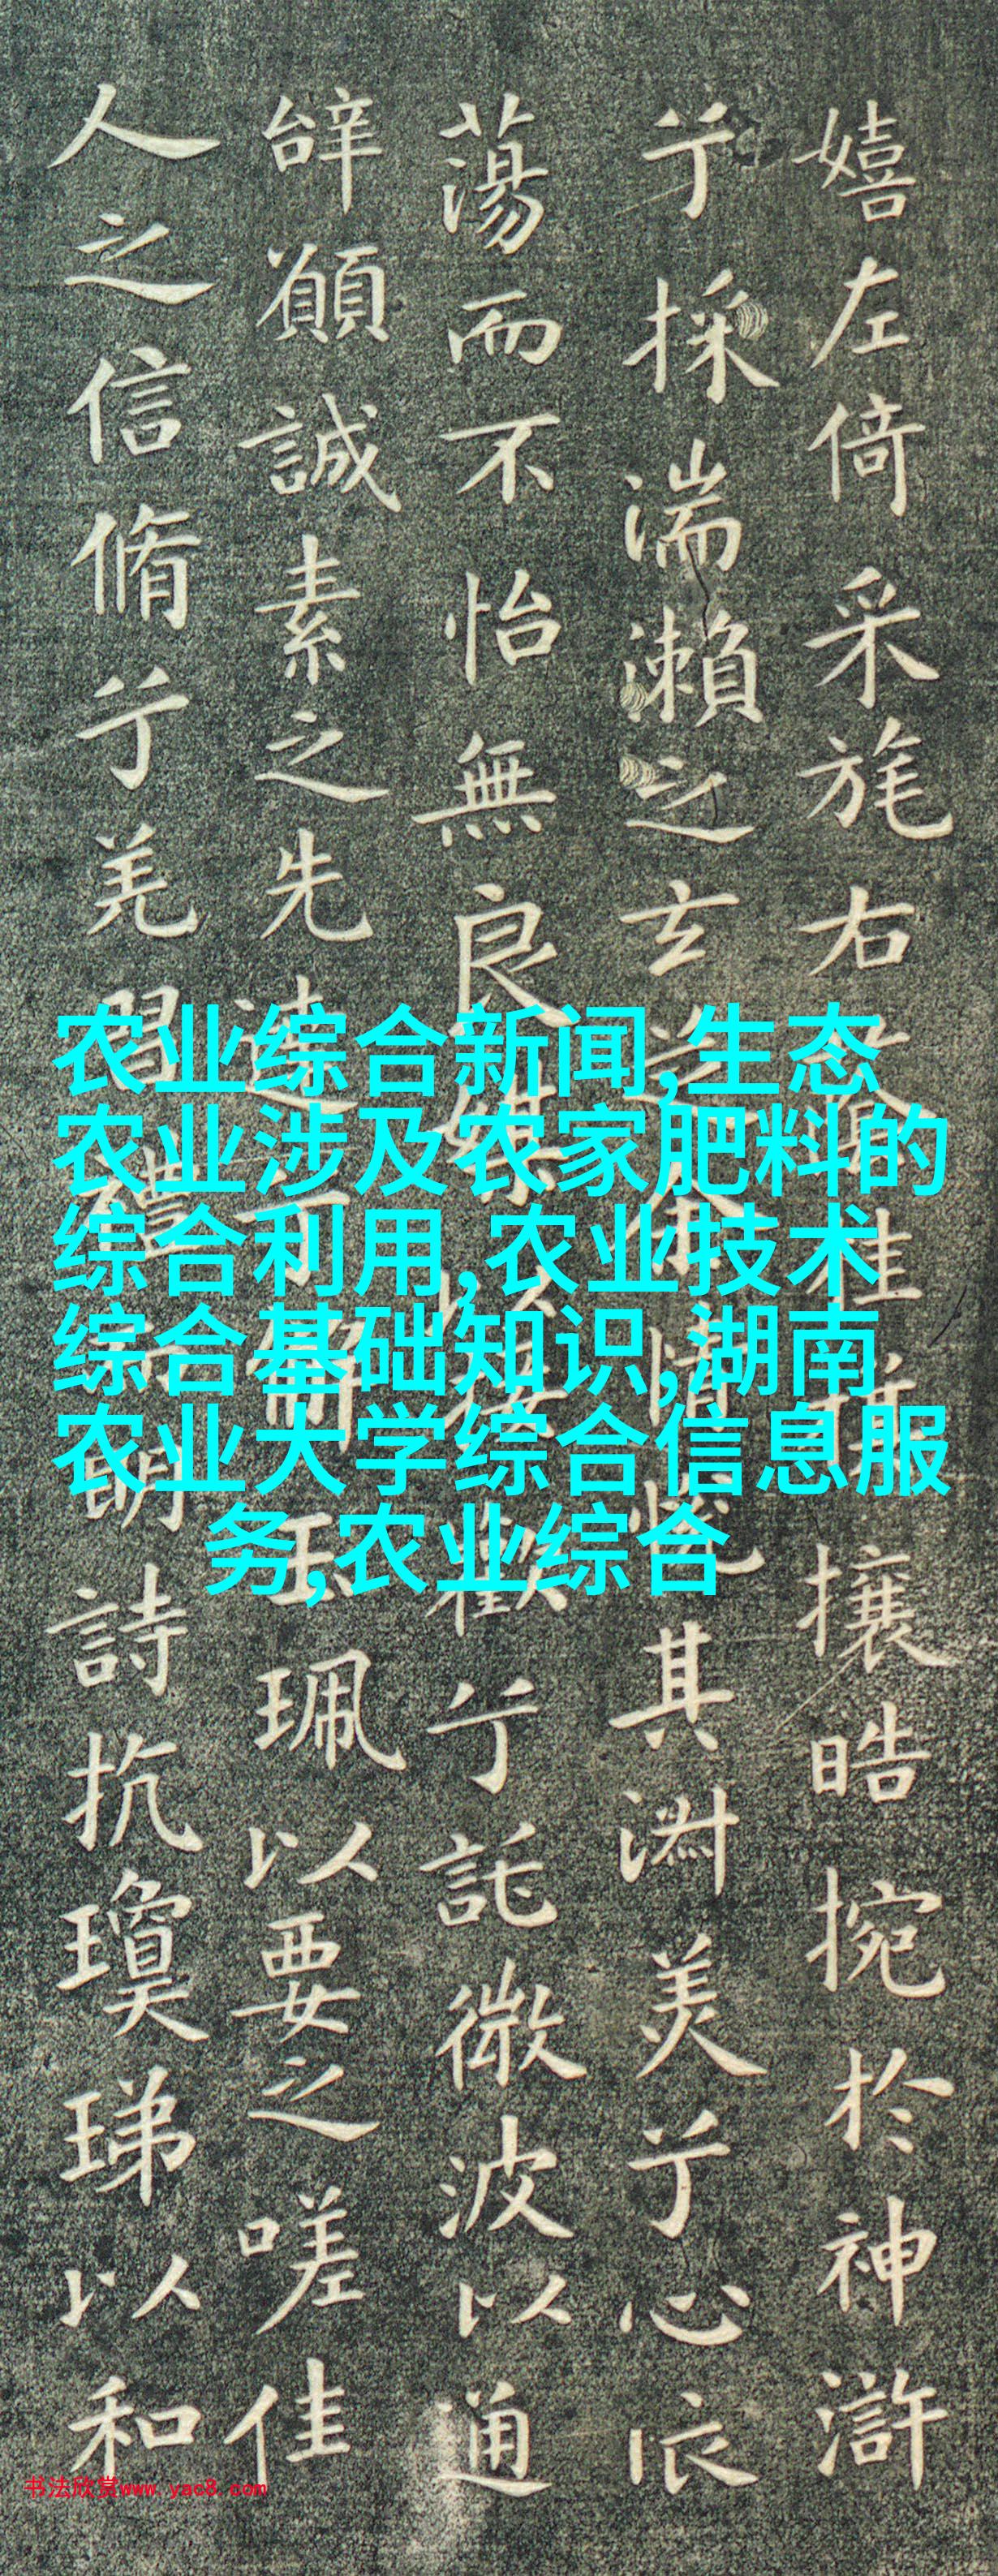 嬉左倚采旄右蔭桂旗攘皓捥於神滸
兮採湍瀨之玄芝余情悅其淑美兮心依
蕩而不怡無良媒以接懽兮託微波以通
辭願誠素之先達兮解玉珮以要之嗟佳
人之信脩兮羌習禮而明詩抗瓊珶以和
农业综合新闻,生态
农业涉及农家肥料的
综合利用,农业技术
综合基础知识,湖南
农业大学综合信息服
务,农业综合
书法欣赏www.yac8.com